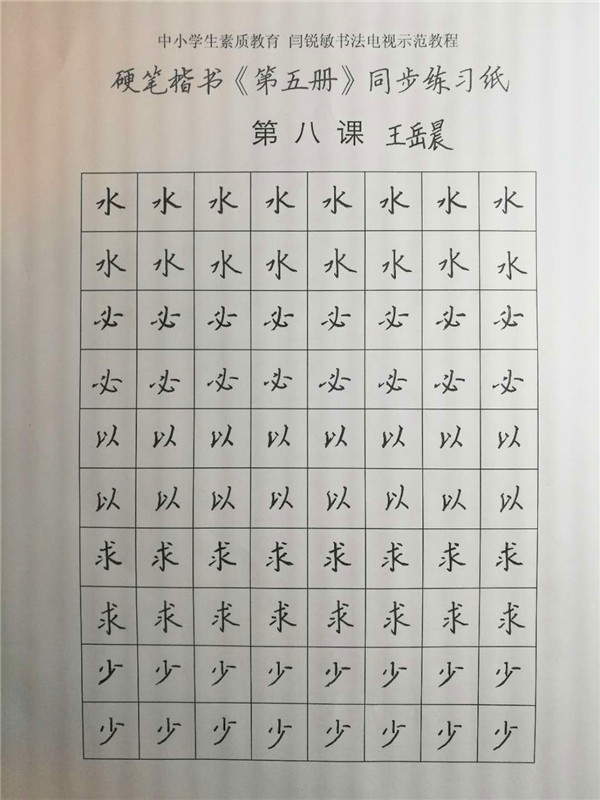 中小学生素质教育 闫锐敏书法电视示范教程
硬笔楷书《第五册》同步练习纸
第八课 王岳晨
水 水 水 水 水 水 水 水
水 水 水 水 水 水 水 水
必 必 必 必 必 必 必 必
必 必 必 必 必 必 必 必
以 以 以 以 以 以 以 以
以 以 以 以 以 以 以 以
求 求 求 求 求 求 求 求
求 求 求 求 求 求 求 求
少 少 少 少 少 少 少 少
少 少 少 少 少 少 少 少